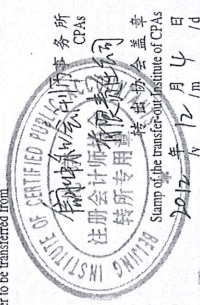 er to be transferred from
事务所
CPAs
BEIJING INSTITUTE OF CERTIFIED PUBLIC
注册会计师
转所专用章
转出协会盖章
Stamp of the transfer-out Institute of CPAs
2012 年 12 月 4 日
/y /m /d